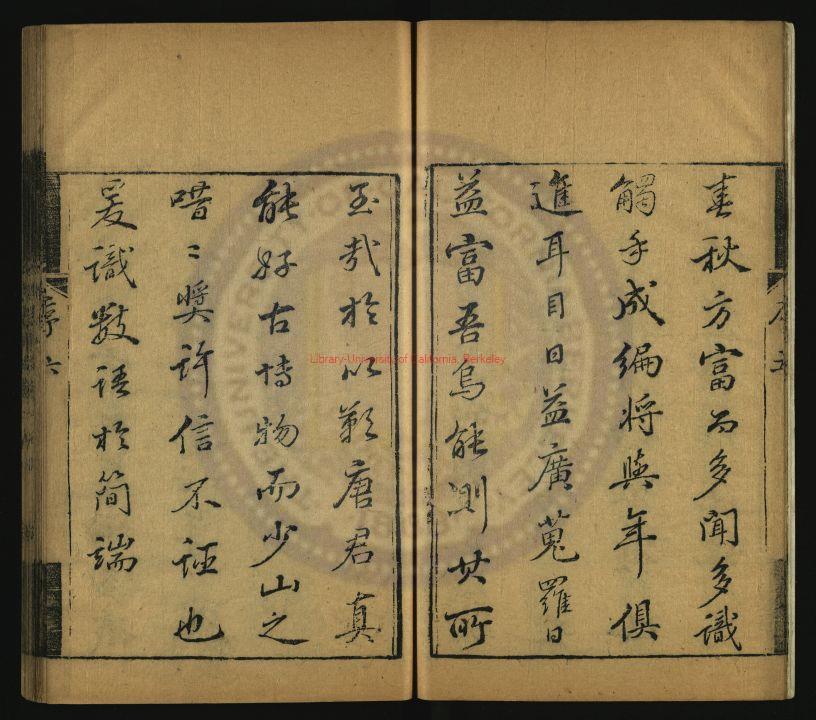 春秋方富而多聞多識
觸手成編將與年俱
進耳目日益廣蒐羅日
益富吾烏能測其所
至哉於以歎唐君真
能好古博物而少山之
嘖〻奬許信不誣也
爰識數語於簡端
序五
序六
Library-University of California, Berkeley